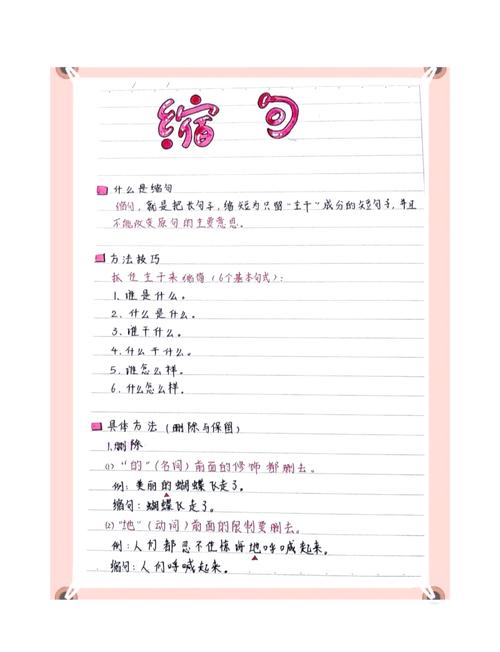 缩句
什么是缩句
缩句,就是把长句子,缩短为只留“主干”成分的短句子,并且
不能改变原句的主要意思。
方法技巧
抓住主干来缩句(6个基本句式):
1、谁是什么。
2、什么是什么。
3、谁干什么。
4、什么干什么。
5、谁怎么样。
6、什么怎么样。
具体方法(删除与保留)
1、删除
(1)“的”(名词)前面的修饰都删去。
例:美丽的蝴蝶飞走了。
缩句:蝴蝶飞走了。
(2)“地”(动词)前面的限制要删去。
例:人们都忍不住惊讶地呼喊起来。
缩句:人们呼喊起来。